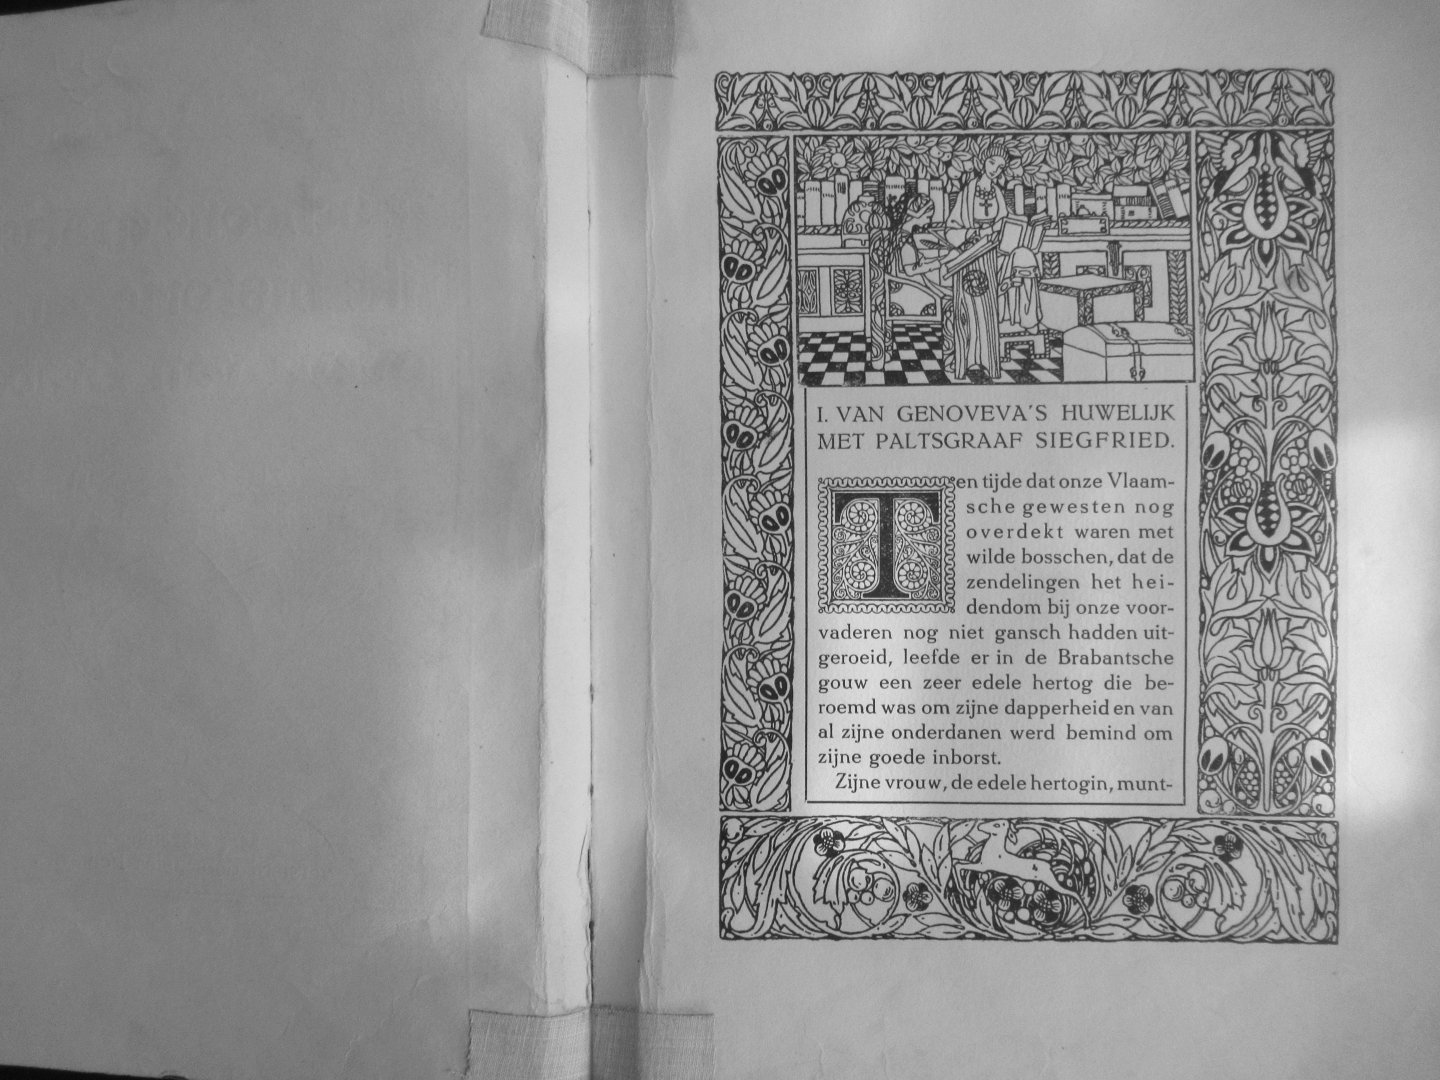 I. VAN GENOVEVA'S HUWELIJK
MET PALTSGRAAF SIEGFRIED.
Ten tijde dat onze Vlaam-
sche gewesten nog
overdekt waren met
wilde bosschen, dat de
zendelingen het hei-
dendom bij onze voor-
vaderen nog niet gansch hadden uit-
geroeid, leefde er in de Brabantsche
gouw een zeer edele hertog die be-
roemd was om zijne dapperheid en van
al zijne onderdanen werd bemind om
zijne goede inborst.
Zijne vrouw, de edele hertogin, munt-